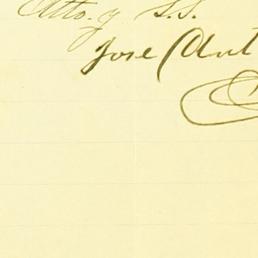 Atto. y S.S.
Jose Ant